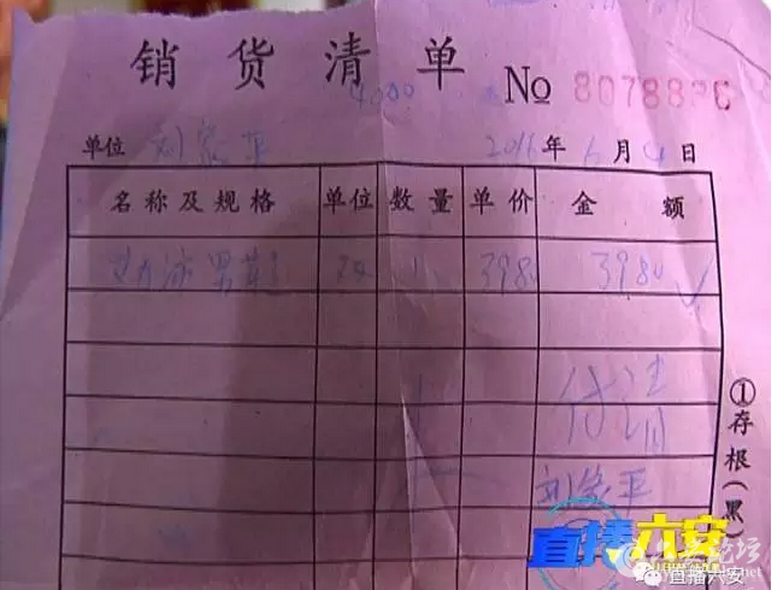 销货清单
No 8078886
4000
单位 刘家平 2016年6月4日
名称及规格 单位 数量 单价 金额
男鞋 双 1 3980 3980
付清
刘家平
①存根(黑)
直播六安
六安论坛
直播六安